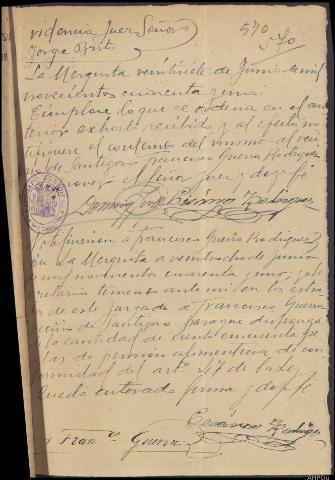 videncia Juez Señor
570
Jorge Brito
570
La Merquita veintisiete de Junio de mil
novecientos cuarenta y uno.
Cúmplase lo que se ordena en el an
terior exhorto recibido y al efecto no
tifíquese el contenido del mismo al veci
no de Santigoso Francisco Guerra Rodriguez
el Señor Juez y doy fé
Notificación a Francisco Guerra Rodriguez
En La Merquita a veintiocho de junio
mil novecientos cuarenta y uno, yo Se
cretario teniendo ante mi en los estra
dos de este juzgado a Francisco Guerra
vecino de Santigoso para que disponga
la cantidad de ciento cincuenta pe
tas de pensión alimenticia de con
formidad del artº 47 de la ley
Quedó enterado firma y doy fé
Franco Guerra
AHPOu